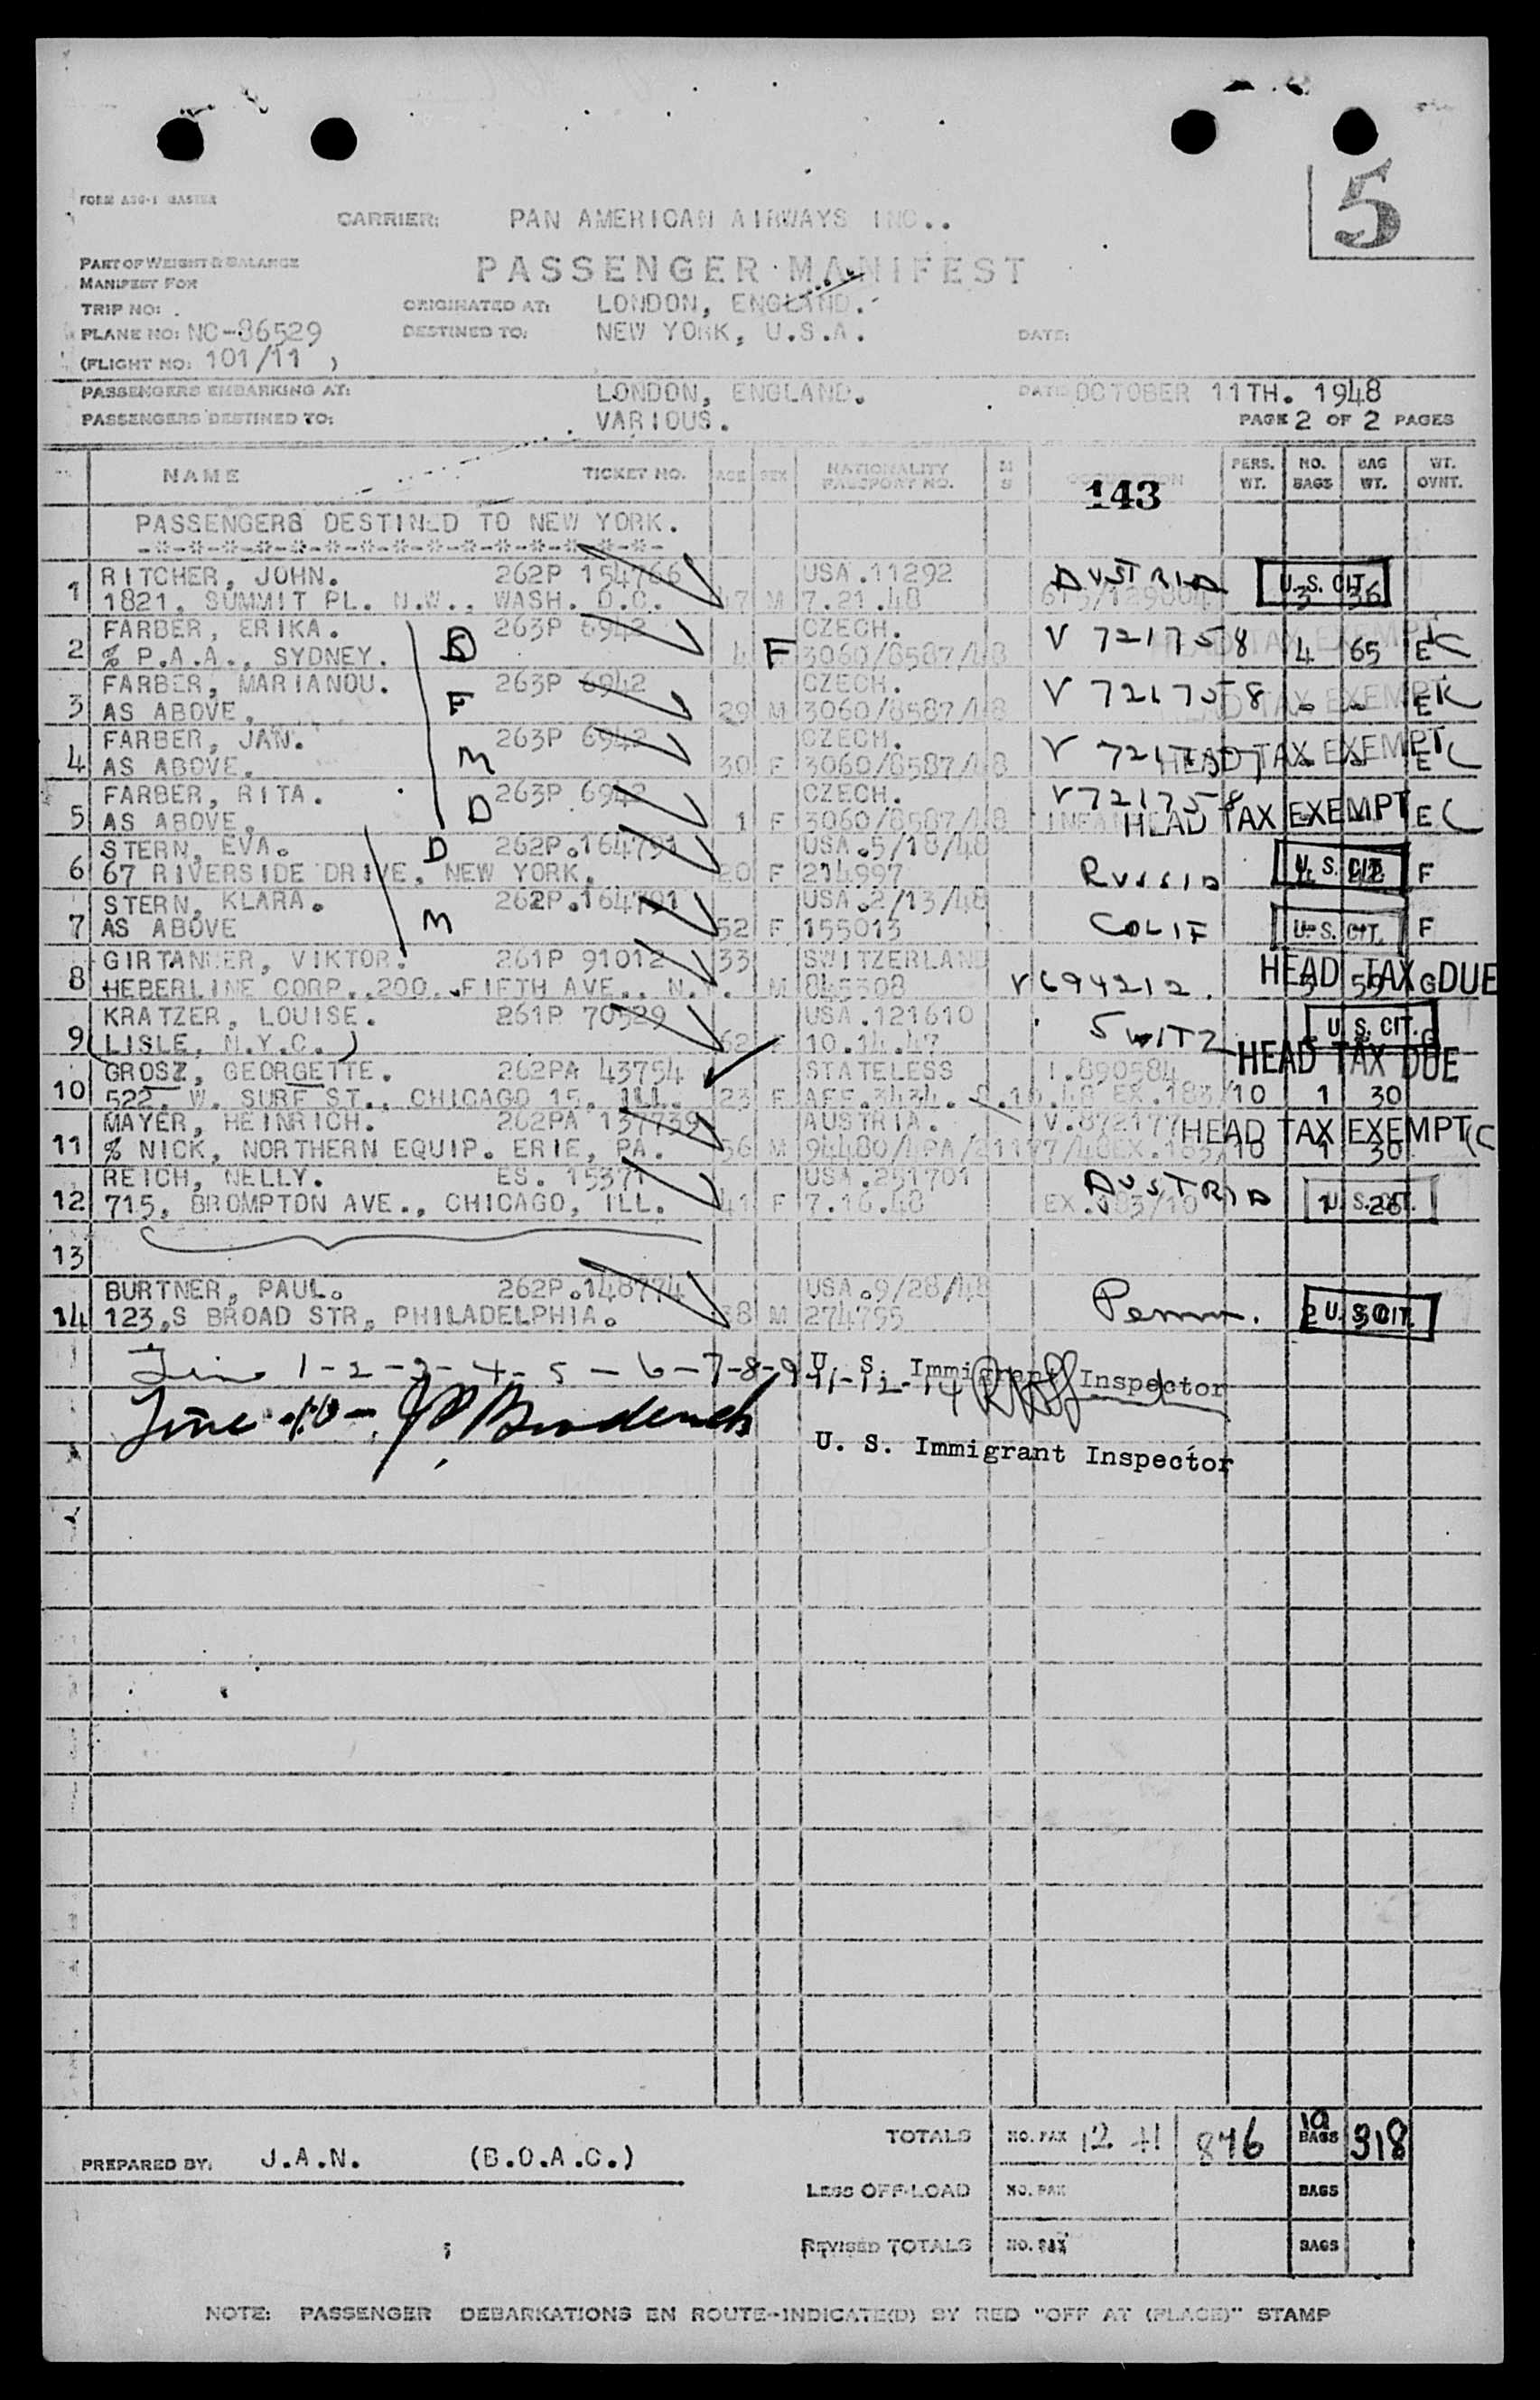 5
FORM ASG-1 MASTER
CARRIER: PAN AMERICAN AIRWAYS INC..
PART OF WEIGHT & BALANCE
MANIFEST FOR
PASSENGER MANIFEST
TRIP NO: . ORIGINATED AT: LONDON, ENGLAND.
PLANE NO: NC-86529 DESTINED TO: NEW YORK, U.S.A. DATE:
(FLIGHT NO: 101/11 )
PASSENGERS EMBARKING AT: LONDON, ENGLAND. DATE OCTOBER 11TH. 1948
PASSENGERS DESTINED TO: VARIOUS. PAGE 2 OF 2 PAGES
NAME TICKET NO. AGE SEX NATIONALITY PASSPORT NO. OCCUPATION PERS. WT. NO. BAGS BAG WT. WT. OVNT.
143
PASSENGERS DESTINED TO NEW YORK.
-*-*-*-*-*-*-*-*-*-*-*-*-*-*-*-
RITCHER, JOHN. 262P 154766 USA.11292 AUSTRIA U.S. CIT.
1 1821, SUMMIT PL. N.W., WASH. D.C. 47 M 7.21.48 3 36
FARBER, ERIKA. D 263P 6942 CZECH. V 721758 HEAD TAX EXEMPT
2 % P.A.A., SYDNEY. 4 F 3060/8587/48 4 65 E
FARBER, MARIANOU. F 263P 6942 CZECH. V 721758 HEAD TAX EXEMPT
3 AS ABOVE. 29 M 3060/8587/48 - - E
FARBER, JAN. M 263P 6942 CZECH. V 721757 HEAD TAX EXEMPT
4 AS ABOVE. 30 F 3060/8587/48 - - E
FARBER, RITA. D 263P 6942 CZECH. V721758
5 AS ABOVE. 1 F 3060/8587/48 HEAD TAX EXEMPT E
STERN, EVA. D 262P.164791 USA.5/18/48 RUSSIA U.S. CIT.
6 67 RIVERSIDE DRIVE, NEW YORK. 20 F 214997 F
STERN, KLARA. M 262P.164791 USA.2/13/48 CALIF U.S. CIT.
7 AS ABOVE 52 F 155013 F
GIRTANNER, VIKTOR. 261P 91012 33 SWITZERLAND HEAD TAX DUE
8 HEBERLINE CORP.,200, FIFTH AVE., N.Y. M 845308 V694212. 3 59 G
KRATZER, LOUISE. 261P 70529 USA.121610 SWITZ U.S. CIT.
9 (LISLE, N.Y.C.) 62 F 10.14.47 G
GROSZ, GEORGETTE. 262PA 43754 STATELESS I.890584 HEAD TAX DUE
10 522. W. SURF ST., CHICAGO 15, ILL. 23 F AFF.3434. EX.183/10 1 30
MAYER, HEINRICH. 262PA 137739 AUSTRIA. V.872177 HEAD TAX EXEMPT
11 % NICK, NORTHERN EQUIP. ERIE, PA. 56 M 94480/4PA/21177/48EX.183/10 1 30
REICH, NELLY. ES. 15371 USA.251701 AUSTRIA U.S. CIT.
12 715, BROMPTON AVE., CHICAGO, ILL. 41 F 7.16.48 EX.183/10 1 26
13
BURTNER, PAUL. 262P.148774 USA.9/28/48 Penn. U.S CIT.
14 123,S BROAD STR, PHILADELPHIA. 38 M 274755 2
Line 1-2-3-4-5-6-7-8-9-11-12-14 U. S. Immigrant Inspector
Line 10-
U. S. Immigrant Inspector
TOTALS NO. PAX 12 +1 876 19 BAGS 318
PREPARED BY: J.A.N. (B.O.A.C.)
LESS OFF-LOAD NO. PAX BAGS
REVISED TOTALS NO. PAX BAGS
NOTE: PASSENGER DEBARKATIONS EN ROUTE-INDICATE(D) BY RED "OFF AT (PLACE)" STAMP